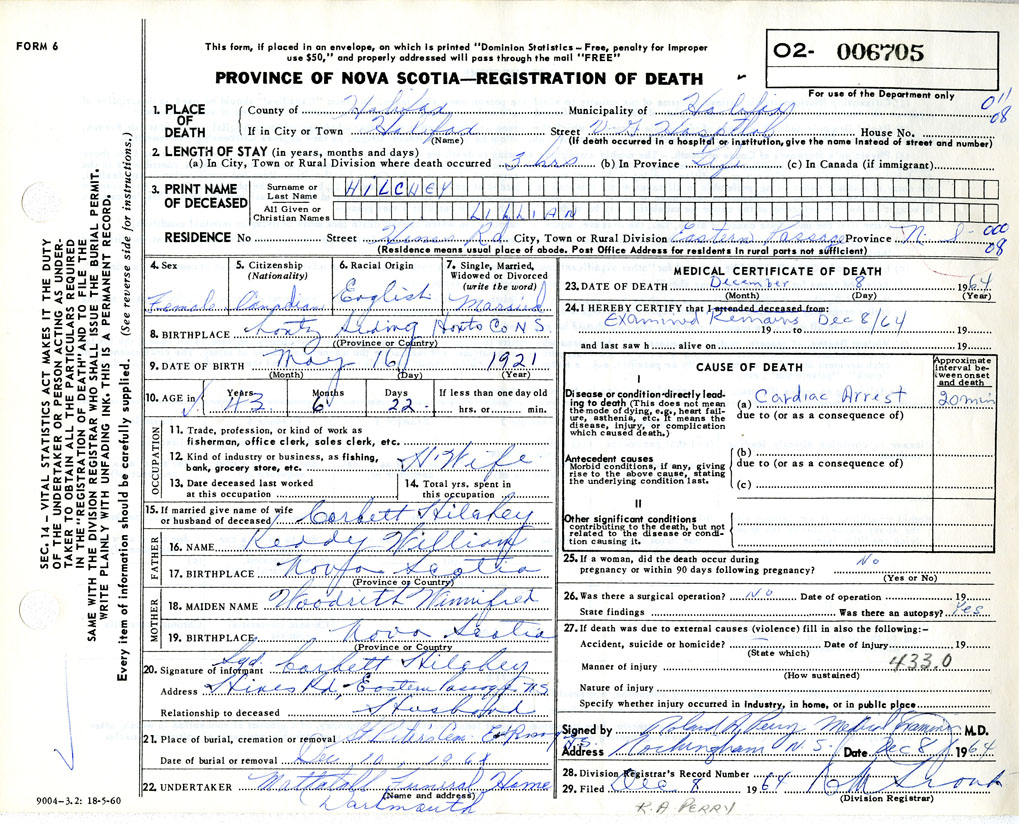 FORM 6
This form, if placed in an envelope, on which is printed "Dominion Statistics – Free, penalty for improper
use $50," and properly addressed will pass through the mail "FREE"
O2- 006705
For use of the Department only
PROVINCE OF NOVA SCOTIA—REGISTRATION OF DEATH
011
08
1. PLACE OF DEATH
County of Halifax Municipality of Halifax
If in City or Town Halifax Street V.G. Hospital House No.
(Name) (If death occurred in a hospital or institution, give the name instead of street and number)
2. LENGTH OF STAY (in years, months and days)
(a) In City, Town or Rural Division where death occurred 3 hrs (b) In Province Life (c) In Canada (if immigrant)
3. PRINT NAME OF DECEASED
Surname or Last Name HILCHEY
All Given or Christian Names LILLIAN
RESIDENCE No Street Hines Rd City, Town or Rural Division Eastern Passage Province N.S.
000
08
(Residence means usual place of abode. Post Office Address for residents in rural parts not sufficient)
4. Sex Female
5. Citizenship (Nationality) Canadian
6. Racial Origin English
7. Single, Married, Widowed or Divorced (write the word) Married
8. BIRTHPLACE Lantz Siding Hants Co N S
(Province or Country)
9. DATE OF BIRTH May 16 1921
(Month) (Day) (Year)
10. AGE in Years 43 Months 6 Days 22 If less than one day old hrs. or min.
OCCUPATION
11. Trade, profession, or kind of work as
fisherman, office clerk, sales clerk, etc.
12. Kind of industry or business, as fishing,
bank, grocery store, etc. H. Wife
13. Date deceased last worked
at this occupation
14. Total yrs. spent in
this occupation
15. If married give name of wife
or husband of deceased Corbett Hilchey
FATHER
16. NAME Keddy William
17. BIRTHPLACE Nova Scotia
(Province or Country)
MOTHER
18. MAIDEN NAME Winnifred
19. BIRTHPLACE Nova Scotia
(Province or Country)
20. Signature of informant Sgd. Corbett Hilchey
Address Hines Rd, Eastern Passage N.S.
Relationship to deceased Husband
21. Place of burial, cremation or removal St Peter's Cem.
Date of burial or removal Dec 10, 1964
22. UNDERTAKER Mattatall Funeral Home
(Name and address)
Dartmouth
MEDICAL CERTIFICATE OF DEATH
23. DATE OF DEATH December 8 1964
(Month) (Day) (Year)
24. I HEREBY CERTIFY that I attended deceased from:
Examined Remains 19 to Dec 8/64 19
and last saw h alive on 19
CAUSE OF DEATH
Approximate interval between onset and death
I
Disease or condition directly leading to death (This does not mean the mode of dying, e.g., heart failure, asthenia, etc. It means the disease, injury, or complication which caused death.)
(a) Cardiac Arrest 20 min
due to (or as a consequence of)
Antecedent causes
Morbid conditions, if any, giving rise to the above cause, stating the underlying condition last.
(b)
due to (or as a consequence of)
(c)
II
Other significant conditions
contributing to the death, but not related to the disease or condition causing it.
25. If a woman, did the death occur during
pregnancy or within 90 days following pregnancy? No
(Yes or No)
26. Was there a surgical operation? No Date of operation 19
State findings Was there an autopsy? Yes
27. If death was due to external causes (violence) fill in also the following:–
Accident, suicide or homicide? Date of injury 19
(State which)
Manner of injury 433.0
(How sustained)
Nature of injury
Specify whether injury occurred in industry, in home, or in public place
Signed by Roland A Perry Medical Examiner M.D.
Address Rockingham N.S. Date Dec 8 1964
28. Division Registrar's Record Number
29. Filed Dec 8 1964
(Division Registrar)
K.A PERRY
SEC. 14 – VITAL STATISTICS ACT MAKES IT THE DUTY
OF THE UNDERTAKER OR PERSON ACTING AS UNDER-
TAKER TO OBTAIN ALL THE PARTICULARS REQUIRED
IN THE "REGISTRATION OF DEATH" AND TO FILE THE
SAME WITH THE DIVISION REGISTRAR WHO SHALL ISSUE THE BURIAL PERMIT.
WRITE PLAINLY WITH UNFADING INK. THIS IS A PERMANENT RECORD.
Every item of information should be carefully supplied. (See reverse side for instructions.)
9004-3.2: 18-5-60